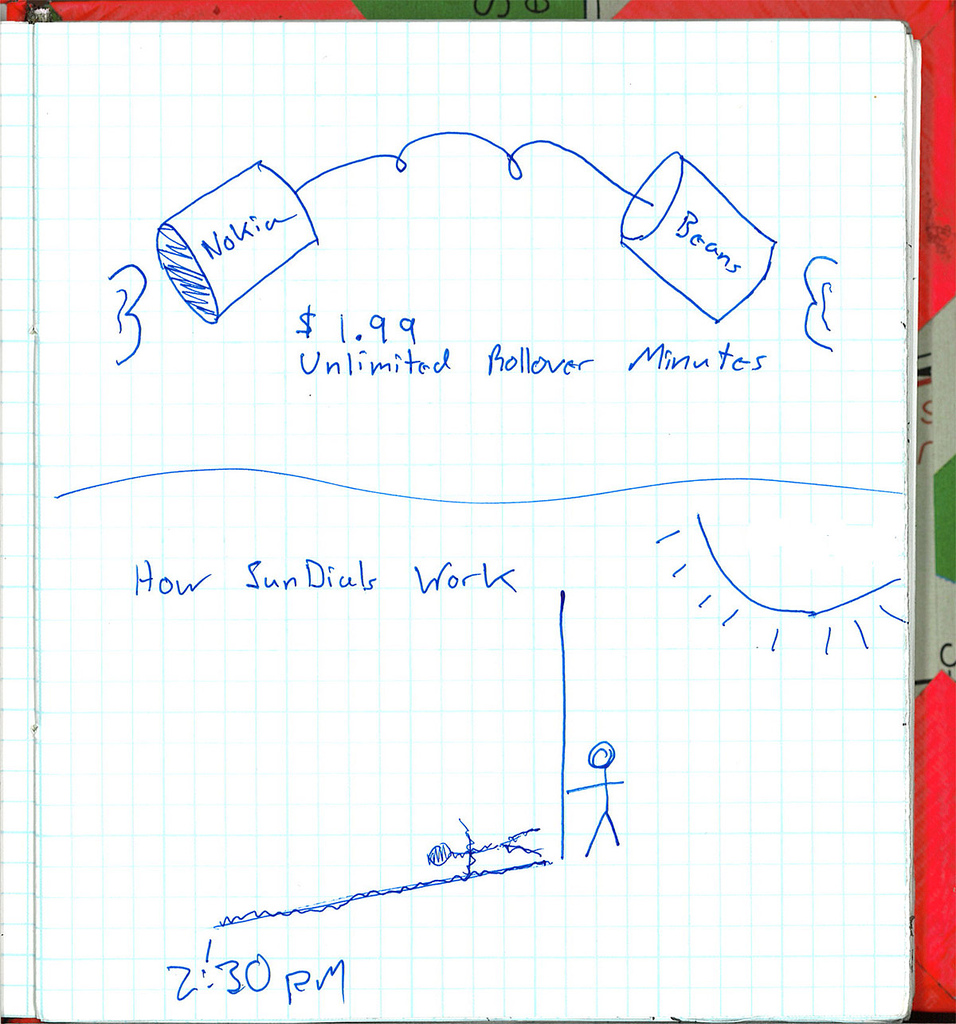 Nokia
Beans
$1.99
Unlimited Rollover Minutes
How SunDials Work
2:30 PM